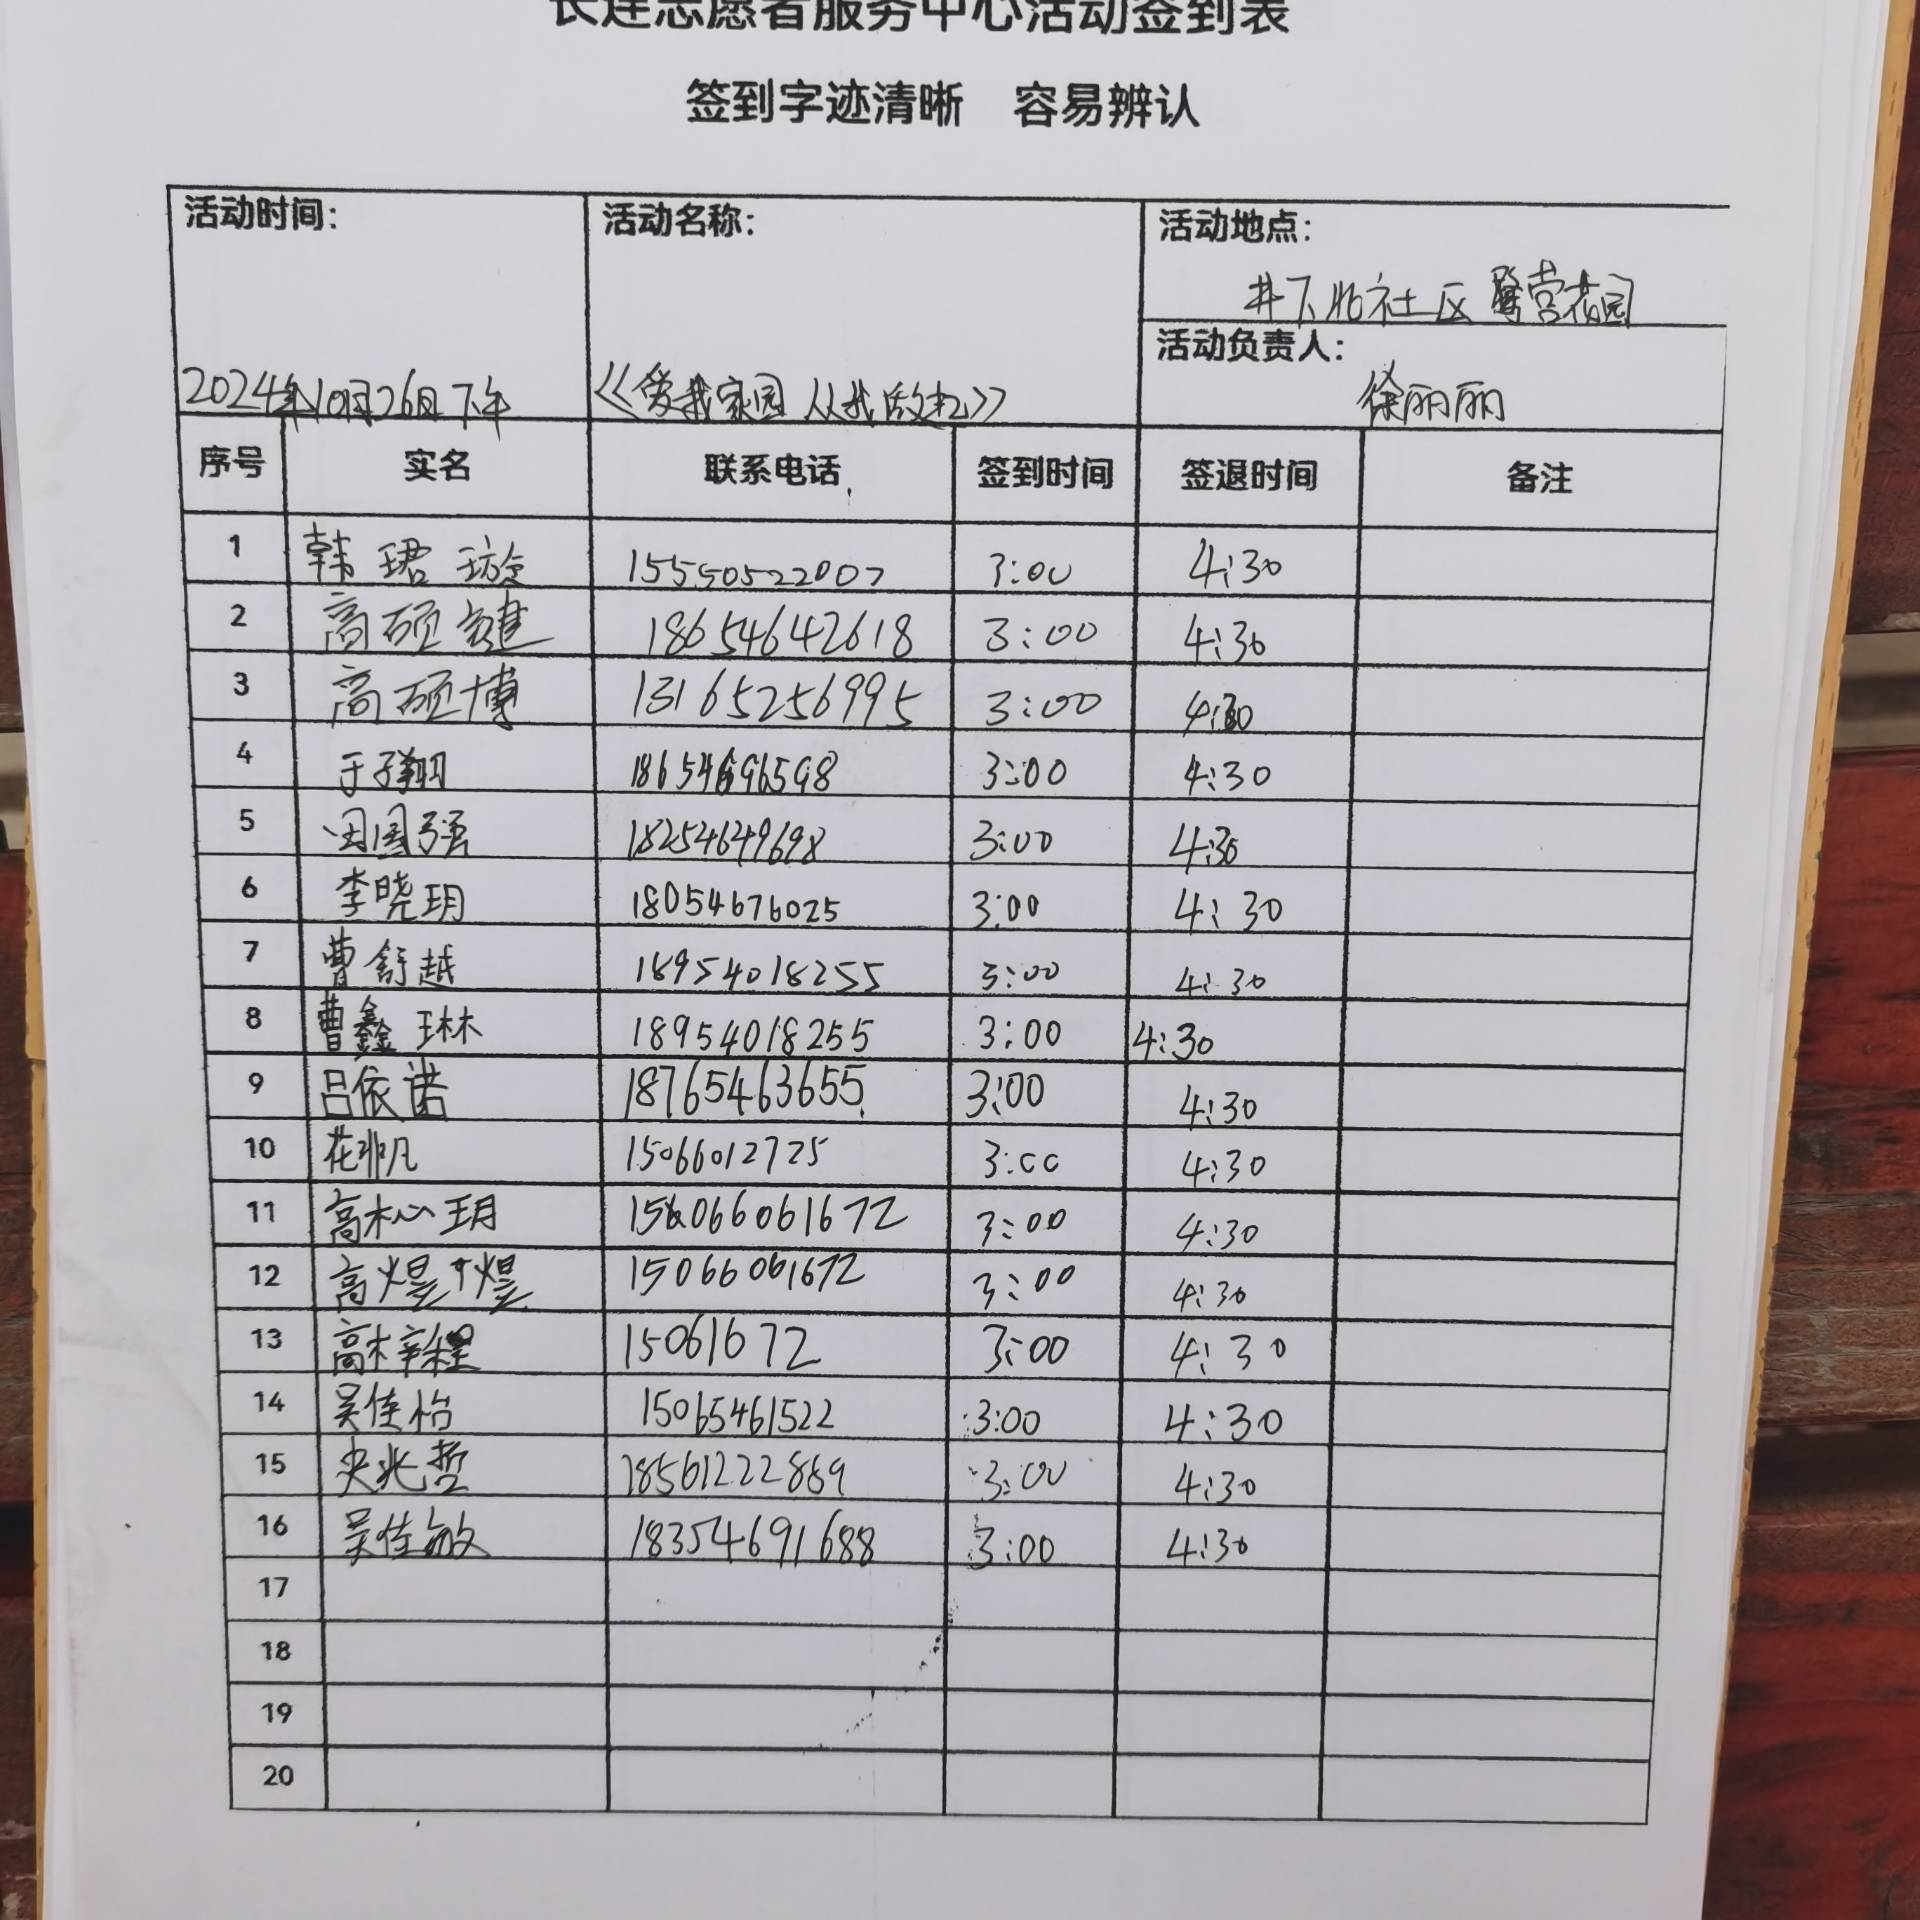 长连志愿者服务中心活动签到表
签到字迹清晰 容易辨认
活动时间： 活动名称： 活动地点：
井下北社区 营花园
活动负责人：
2024年10月26日下午 《爱我家园 从我做起》 徐丽丽
序号 实名 联系电话 签到时间 签退时间 备注
1 韩珺璇 15550522007 3:00 4:30
2 高硕 18654642618 3:00 4:30
3 高硕博 13165256995 3:00 4:30
4 于子翔 18654696598 3:00 4:30
5 田国强 18254649698 3:00 4:30
6 李晓玥 18054676025 3:00 4:30
7 曹舒越 18954018255 3:00 4:30
8 曹鑫琳 18954018255 3:00 4:30
9 吕依诺 18765463655 3:00 4:30
10 花非凡 15066012725 3:00 4:30
11 高杺玥 15066061672 3:00 4:30
12 高煜 15066061672 3:00 4:30
13 高梓程 15061672 3:00 4:30
14 吴佳怡 15065461522 3:00 4:30
15 兆哲 18561222889 3:00 4:30
16 吴佳敏 18354691688 3:00 4:30
17
18
19
20